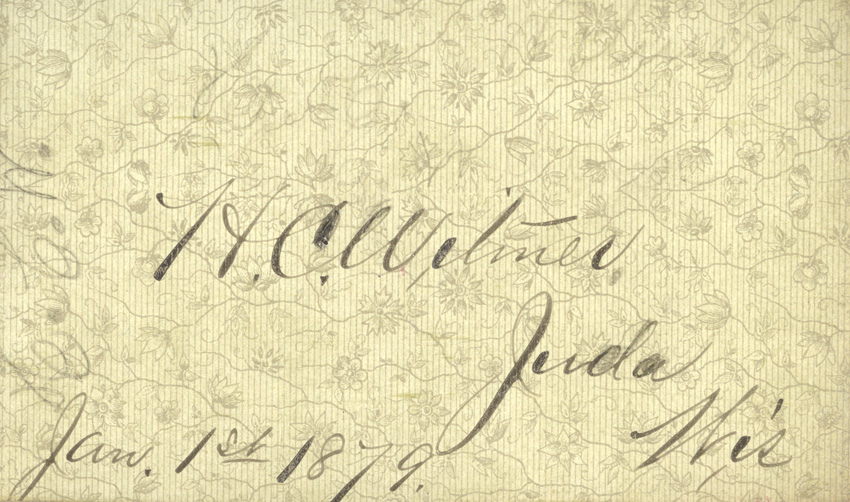 H. C. Witmer
Juda
Wis
Jan. 1st 1879.